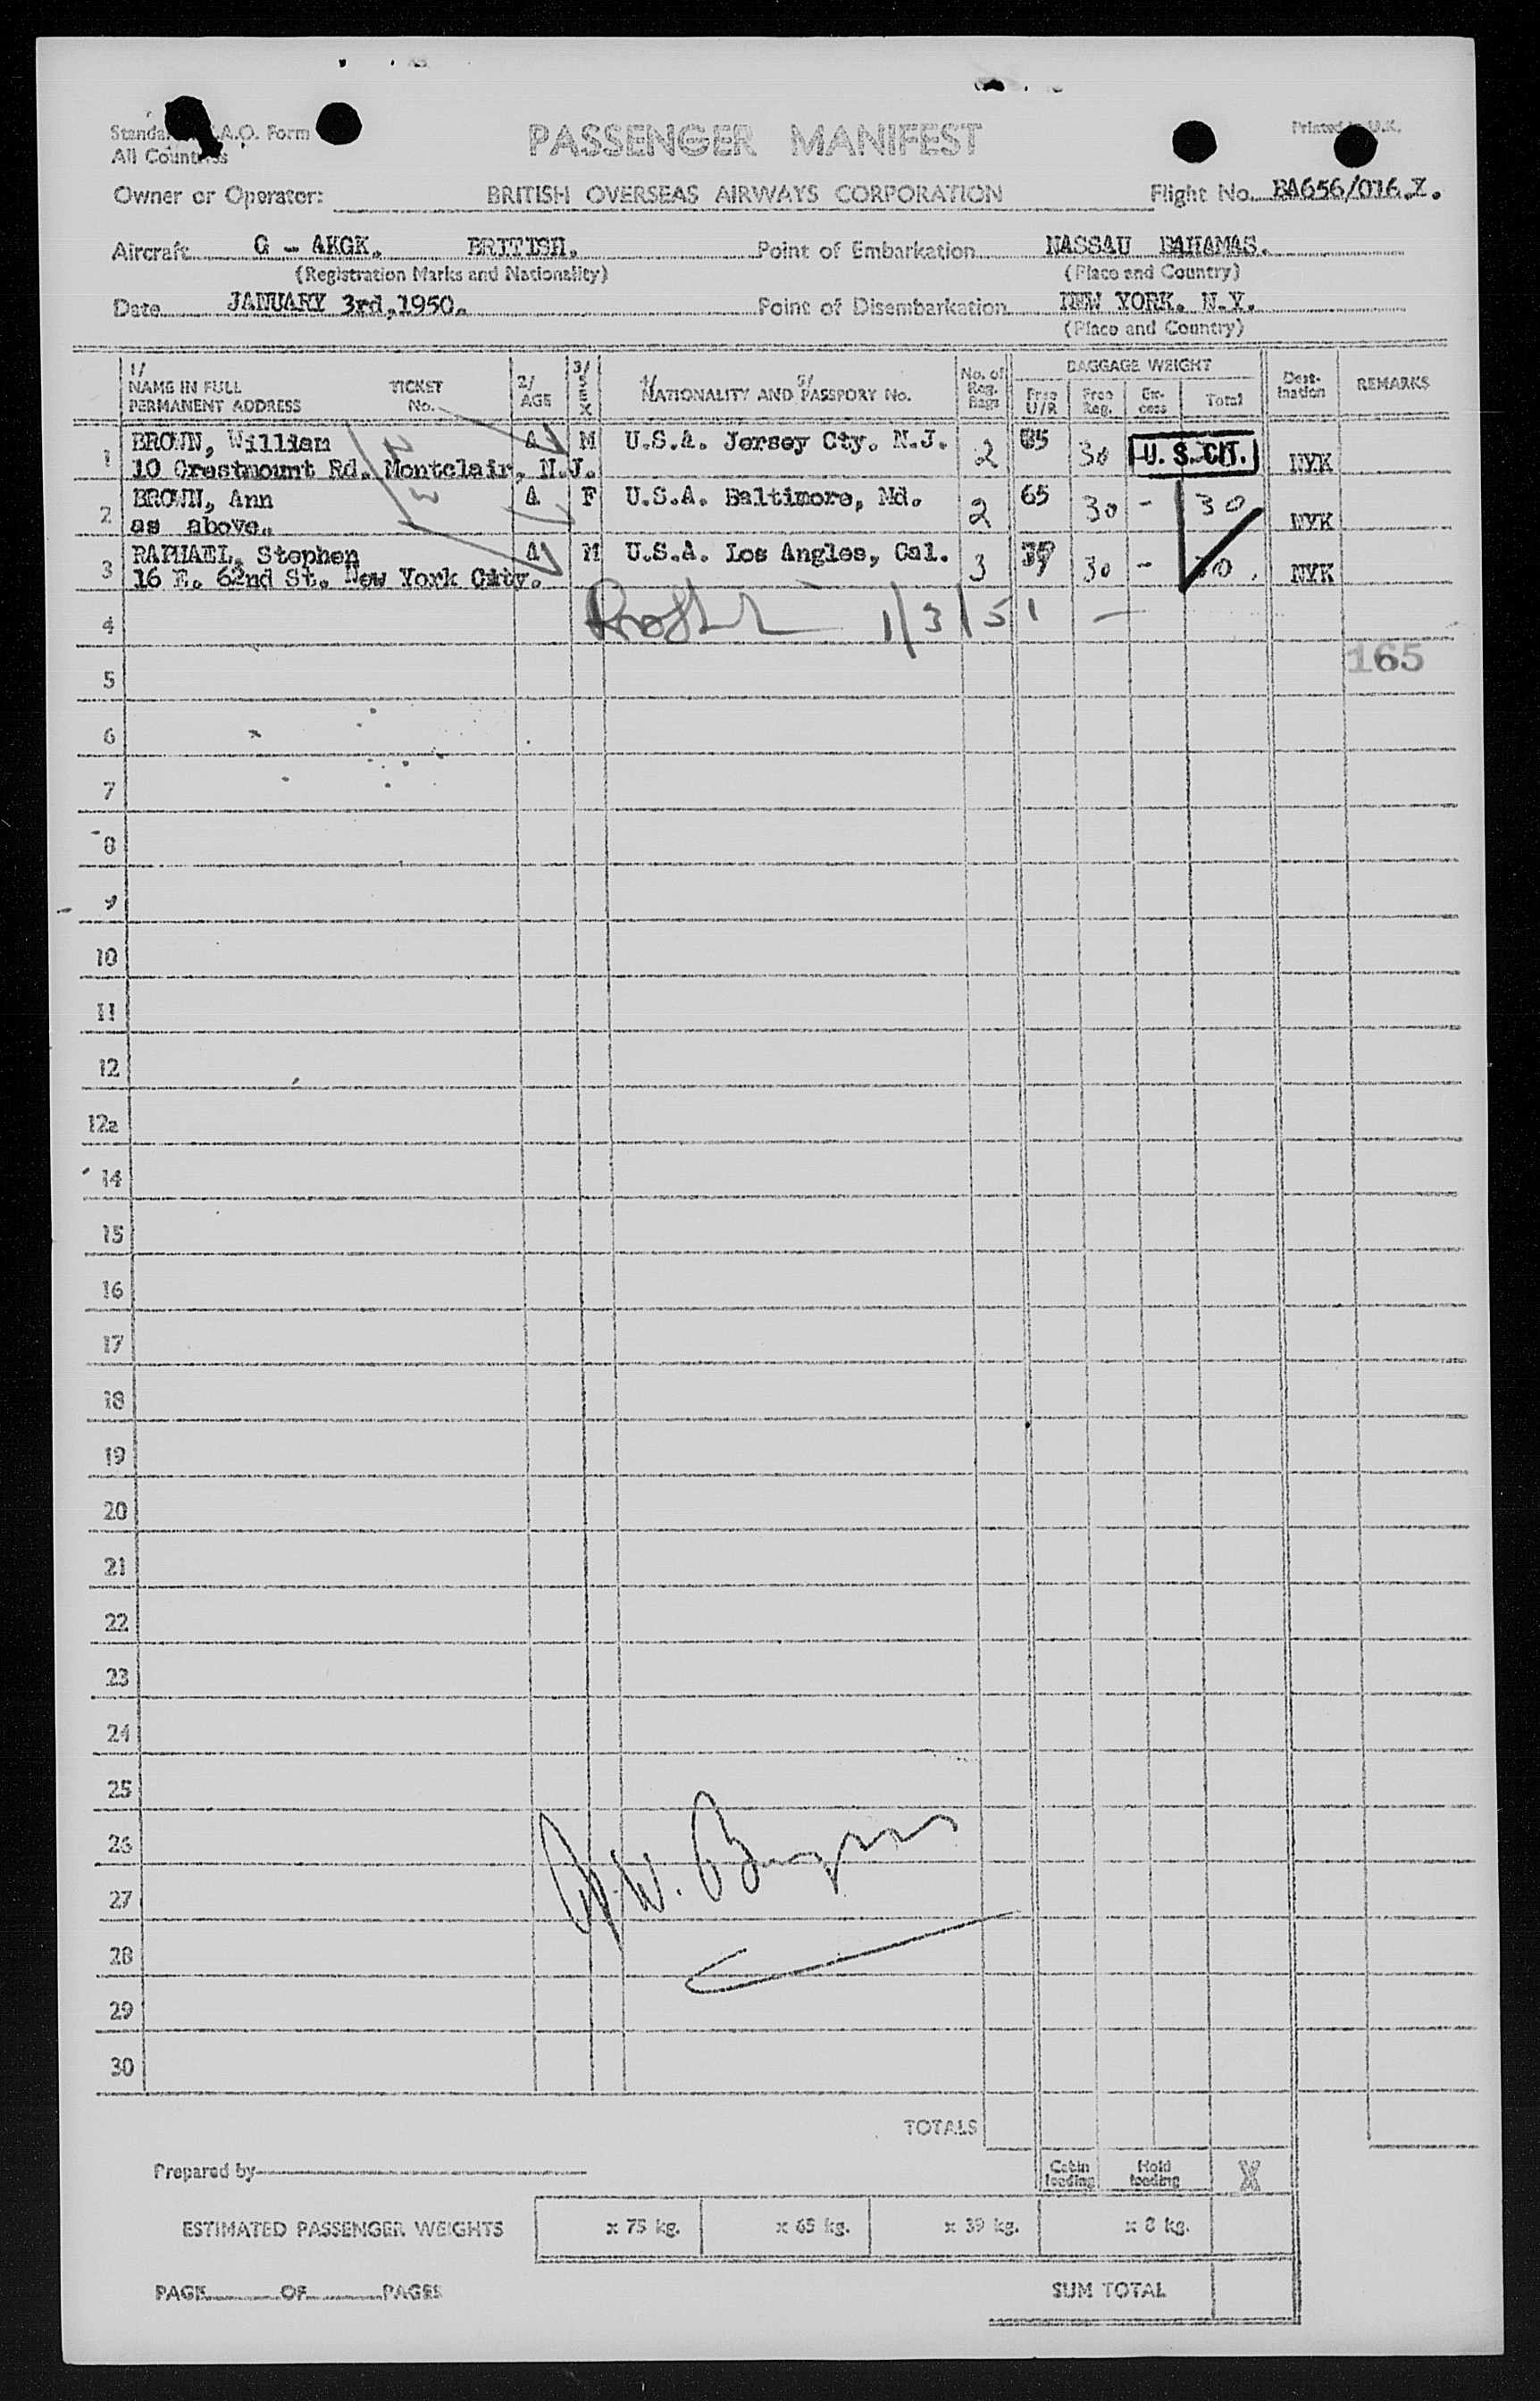 PASSENGER MANIFEST
Form
All Countries
Printed in U.K.
Owner or Operator: BRITISH OVERSEAS AIRWAYS CORPORATION Flight No. BA656/016.X.
Aircraft G - AKGK. BRITISH. Point of Embarkation NASSAU BAHAMAS.
(Registration Marks and Nationality) (Place and Country)
Date JANUARY 3rd,1950. Point of Disembarkation NEW YORK. N.Y.
(Place and Country)
1/ NAME IN FULL PERMANENT ADDRESS TICKET No. 2/ AGE 3/ SEX 4/ 5/ NATIONALITY AND PASSPORT No. No. of Reg. Bags BAGGAGE WEIGHT Free U/R Free Reg. Ex-cess Total Dest-ination REMARKS
1 BROWN, William A M U.S.A. Jersey Cty. N.J. 2 30 U. S. CIT. NYK
10 Crestmount Rd. Montclair, N.J.
2 BROWN, Ann A F U.S.A. Baltimore, Md. 2 65 30 - 30 NYK
as above.
3 RAPHAEL, Stephen A M U.S.A. Los Angles, Cal. 3 30 - NYK
16 E. 62nd St. New York City.
4 1/3/51 -
165
5
6
7
8
9
10
11
12
12a
14
15
16
17
18
19
20
21
22
23
24
25
26
27
28
29
30
TOTALS
Prepared by
Cabin loading Hold loading X
ESTIMATED PASSENGER WEIGHTS x 75 kg. x 65 kg. x 39 kg. x 8 kg.
PAGE OF PAGES SUM TOTAL